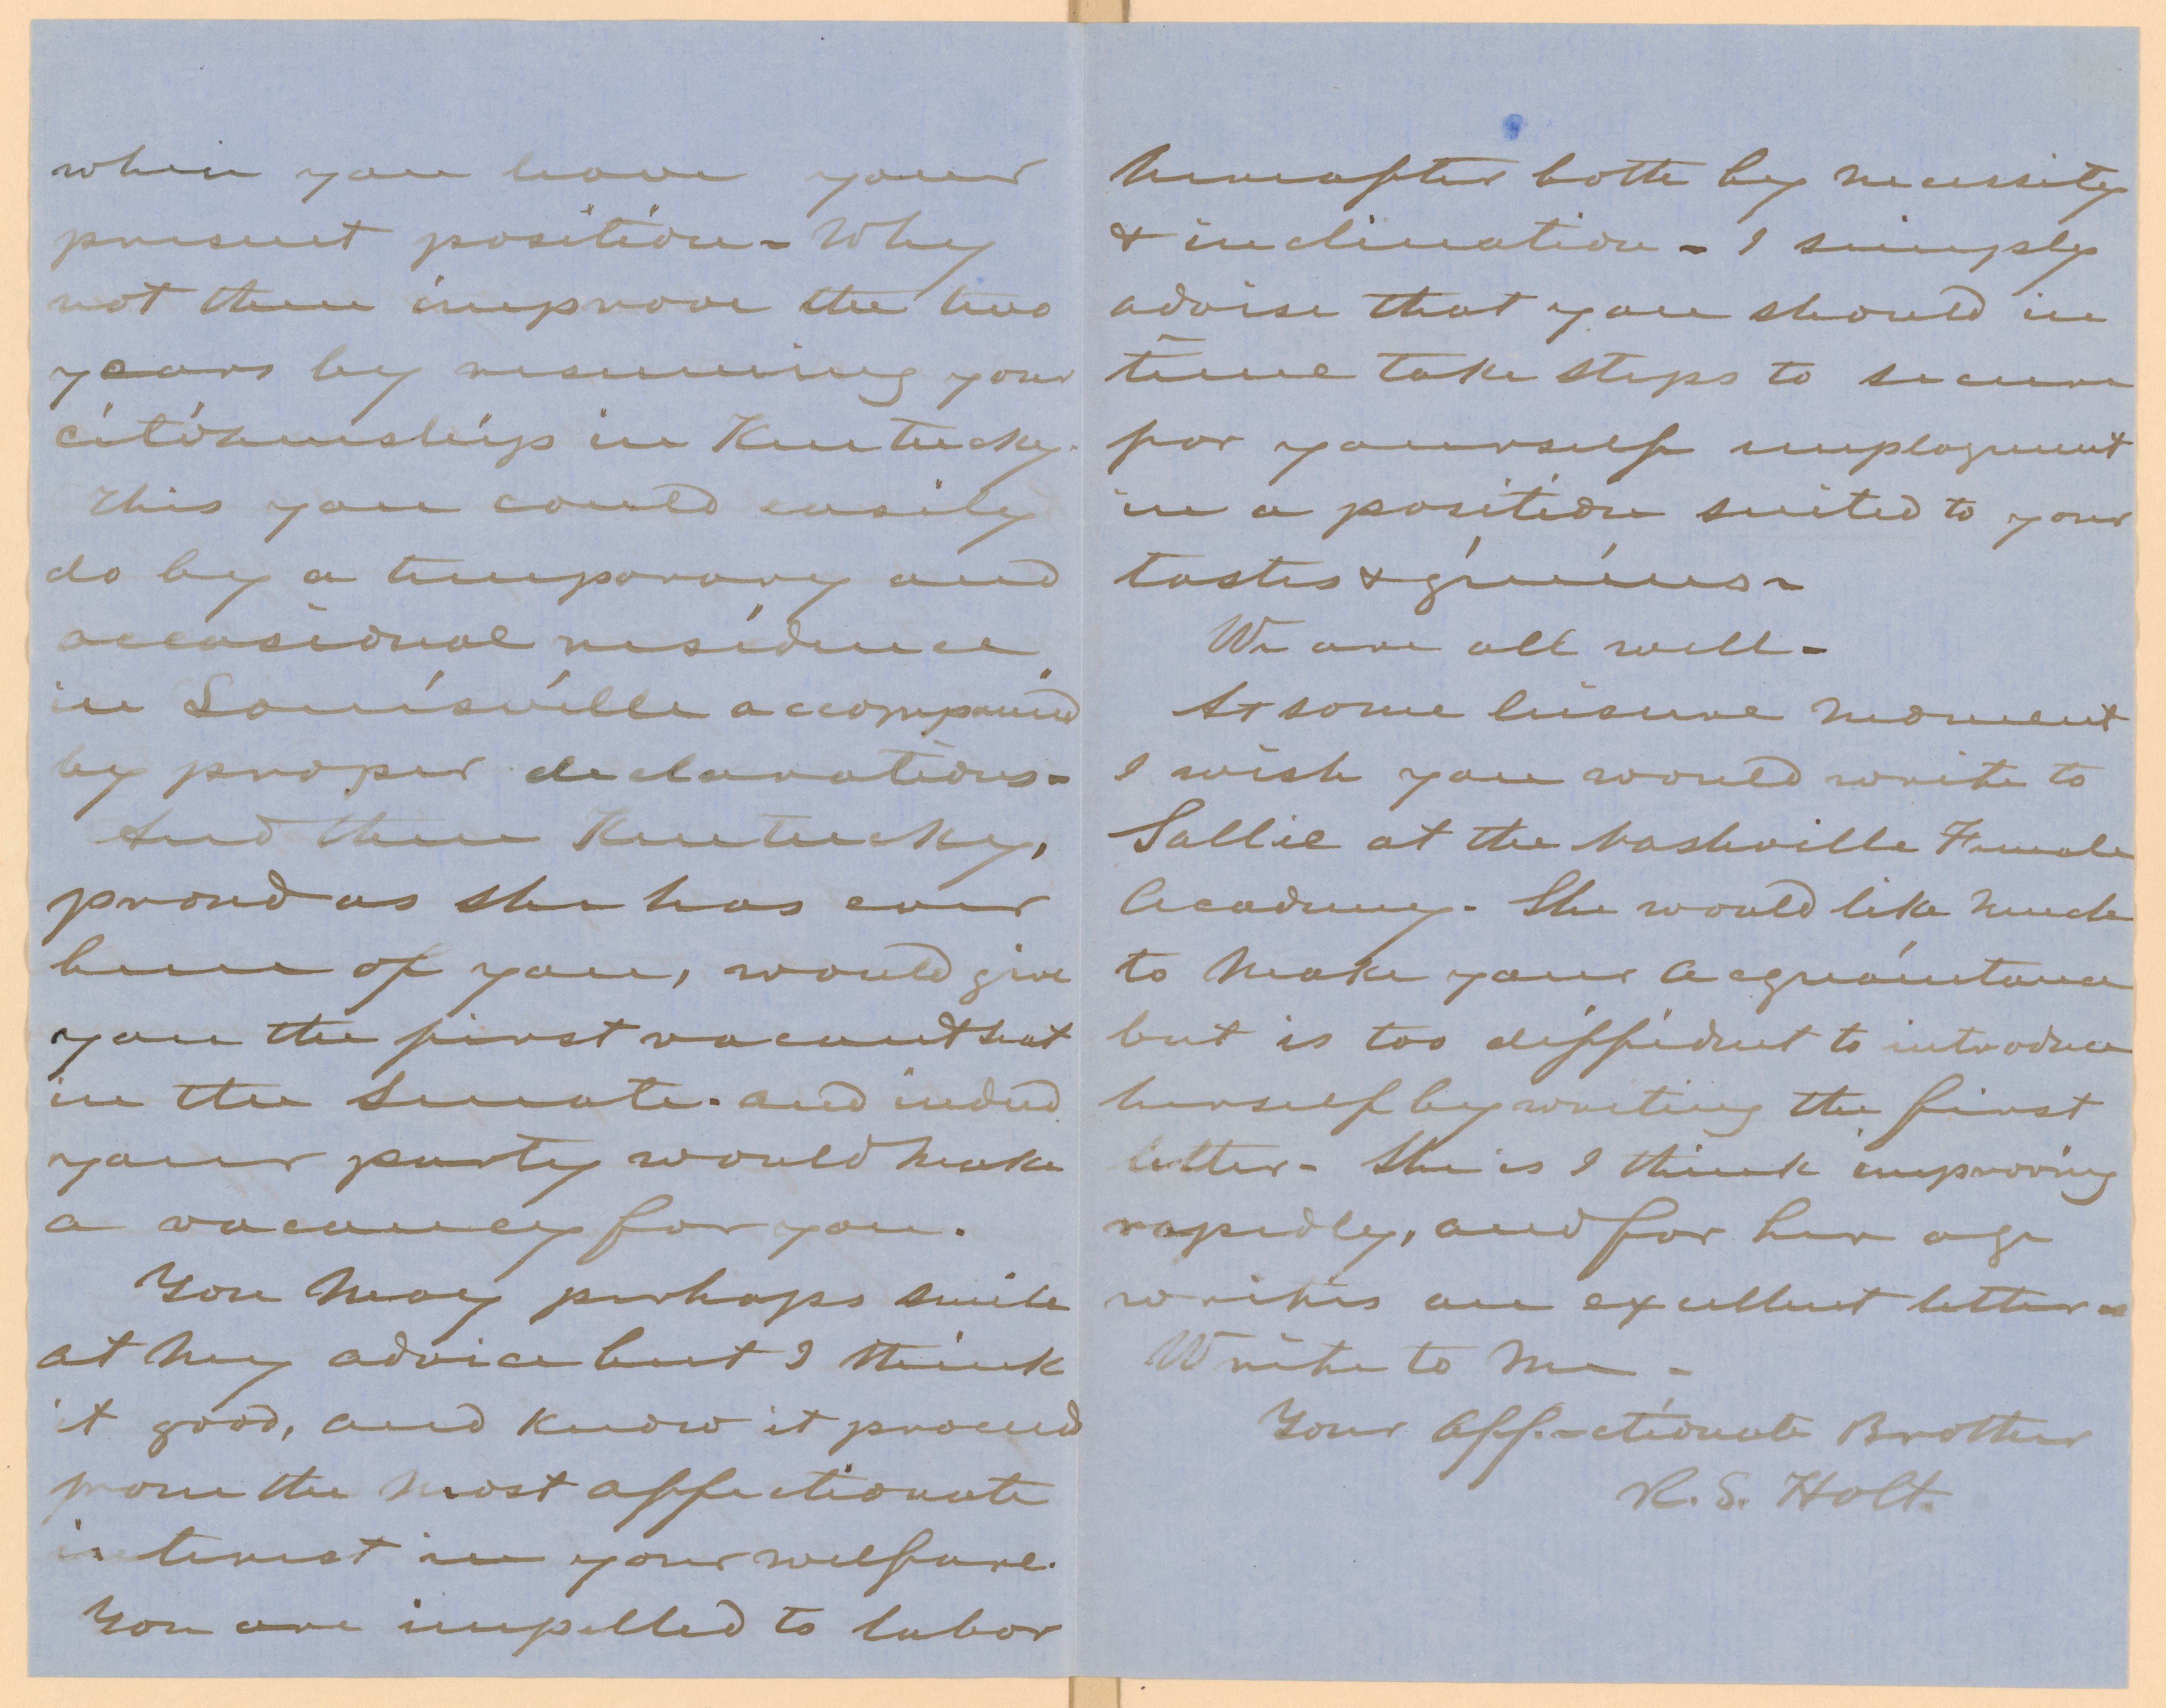 when you leave your
present position - Why
not then improve the two
years by resuming your
citizenship in Kentucky.
This you could easily
do by a temporary and
occasional residence
in Louisville accompanied
by proper declarations -
And then Kentucky,
proud as she has ever
been of you, would give
you the first vacant seat
in the Senate. and indeed
your party would make
a vacancy for you.
You may perhaps smile
at my advice but I think
it good, and know it proceeds
from the most affectionate
interest in your welfare.
You are impelled to labor
hereafter both by necessity
& inclination - I simply
advise that you should in
time take steps to secure
for yourself employment
in a position suited to your
tastes & genius -
We are all well -
At some leisure moment
I wish you would write to
Sallie at the Nashville Female
Academy - She would like much
to make your acquaintance
but is too diffident to introduce
herself by writing the first
letter - She is I think improving
rapidly, and for her age
writes an excellent letter -
Write to me -
Your Affectionate Brother
R. S. Holt.